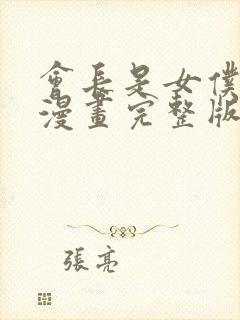 會長是女僕
漫畫完整版
張亮